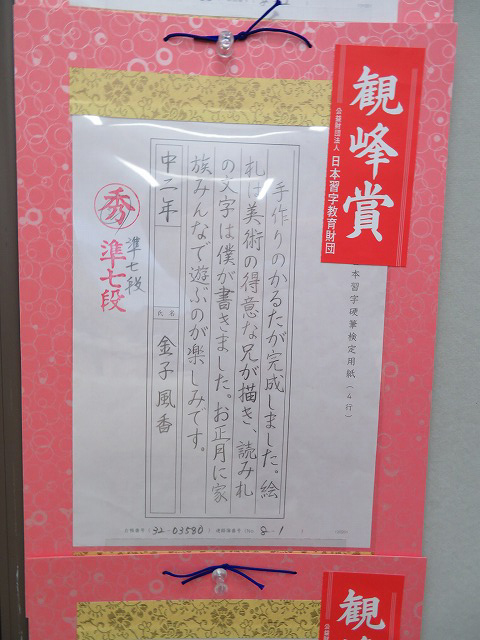 観峰賞
公益財団法人 日本習字教育財団
日本習字硬筆検定用紙(4行)
手作りのかるたが完成しました。絵
札は美術の得意な兄が描き、読み札
の文字は僕が書きました。お正月に家
族みんなで遊ぶのが楽しみです。
中二年
氏名
金子風香
準七段
秀
準七段
32-03580
8-1
観峰